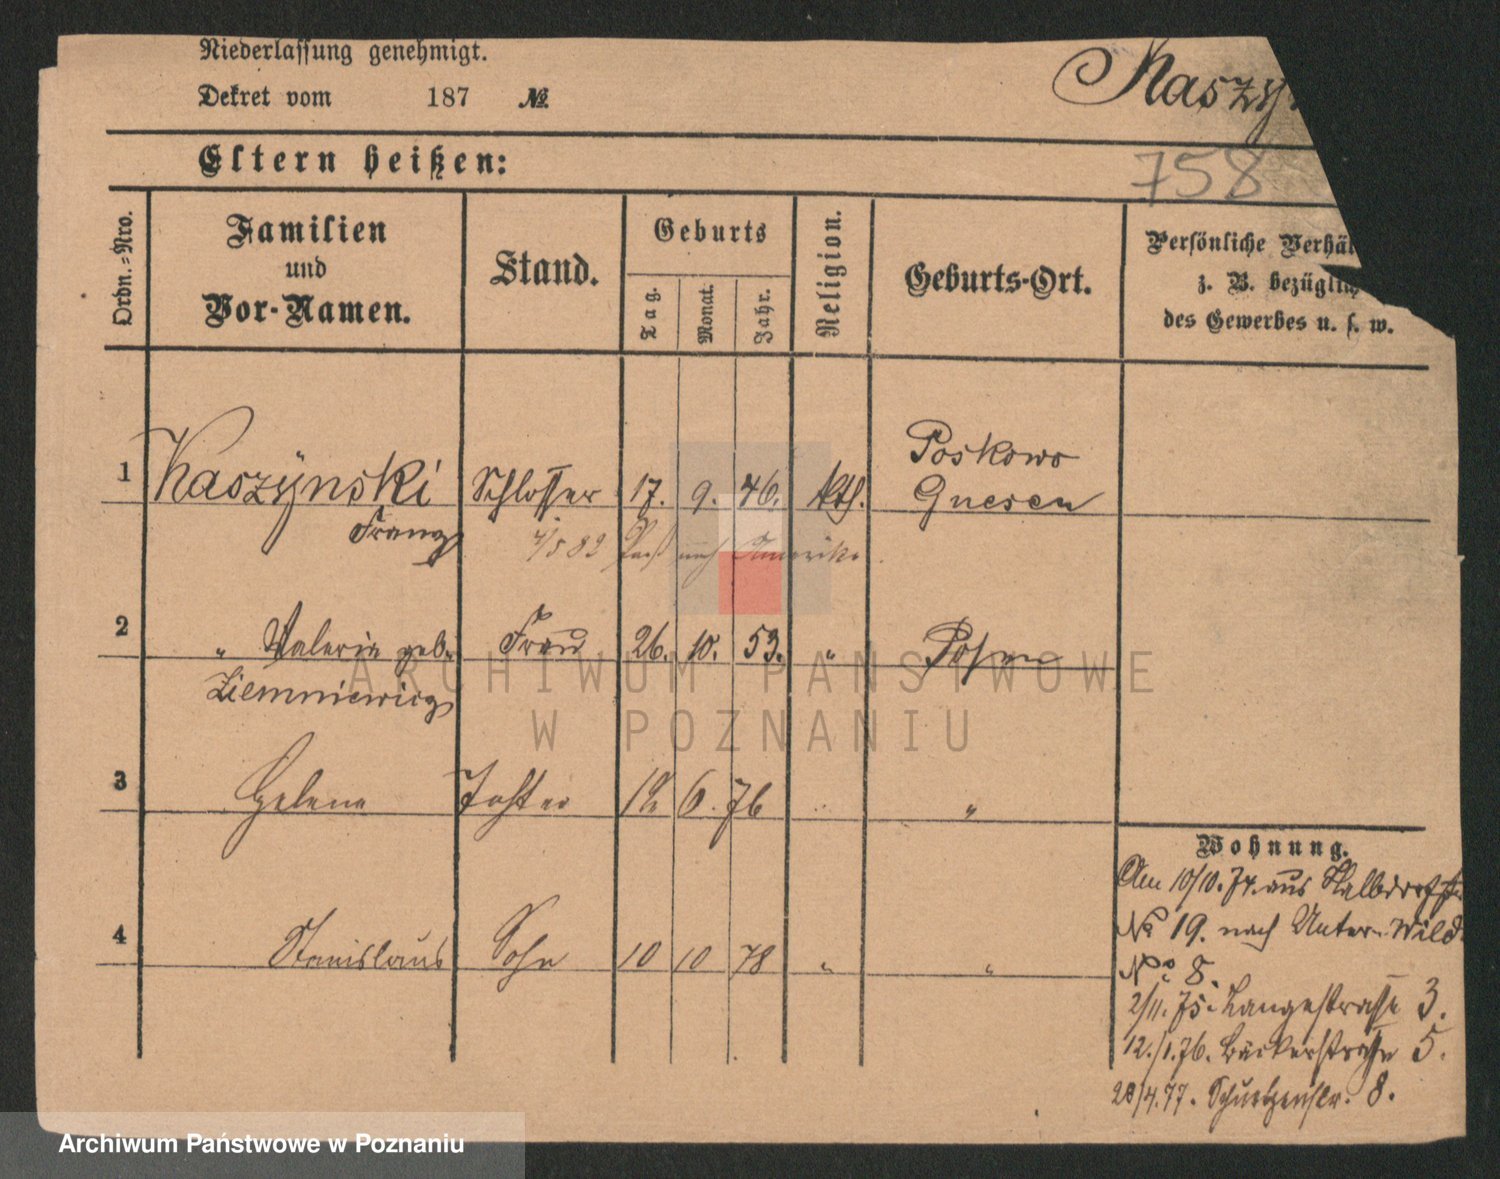 Niederlassung genehmigt.
Dekret vom 187 №
Kaszy
758
Eltern heißen:
Ordn.=Nro.
Familien
und
Vor-Namen.
Stand.
Geburts
Tag.
Monat.
Jahr.
Religion.
Geburts-Ort.
Persönliche Verhäl
z. B. bezüglich
des Gewerbes u. s. w.
1 Kaszynski Schlosser 17. 9. 46. kth. Poskowo
Gnesen
Franz
5 82 Paß nach Amerika
2 " Valeria geb. Frau 26. 10. 53. " Posen
Ziemniewicz
3 Helene Tochter 12 6. 76 "
4 Stanislaus Sohn 10 10 78 " "
Wohnung.
Am 10/10. 74. aus Halbdorfstr.
No 19. nach Unter-Wild
No. 8.
2/11. 75. Langestrasse 3.
12./1.76. Bäckerstrasse 5.
28/4.77. Schuetzenstr. 8.
ARCHIWUM PAŃSTWOWE
W POZNANIU
Archiwum Państwowe w Poznaniu